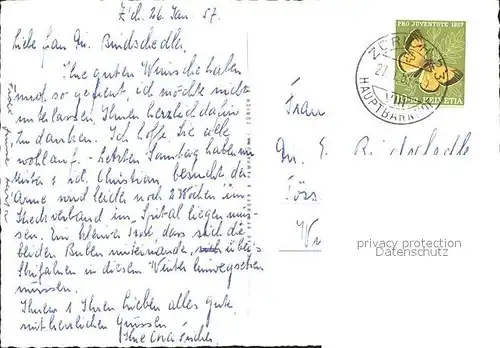 Z'ch. 26. Jan. 57.
Liebe Frau Dr. Bindschedler,
Ihre guten Wünsche haben
mich so gefreut, ich möchte nicht
unterlassen, Ihnen herzlich dafür
zu danken. Ich hoffe Sie alle
wohlauf. - Letzten Samstag haben
Christian besucht der
Arme wird leider noch 2 Wochen im
Streckverband im Spital liegen müs-
sen. Ein kleiner Trost dass sich die
beiden Buben miteinander über's
Skifahren in diesem Winter hinwegsetzen
müssen.
Ihnen & Ihren Lieben alles gute
mit herzlichen Grüssen
Ihre
PRO JUVENTUTE 1957
HELVETIA
ZÜRICH 23
HAUPTBAHNHOF
Frau
Dr. E. Bindschedler
privacy protection
Datenschutz